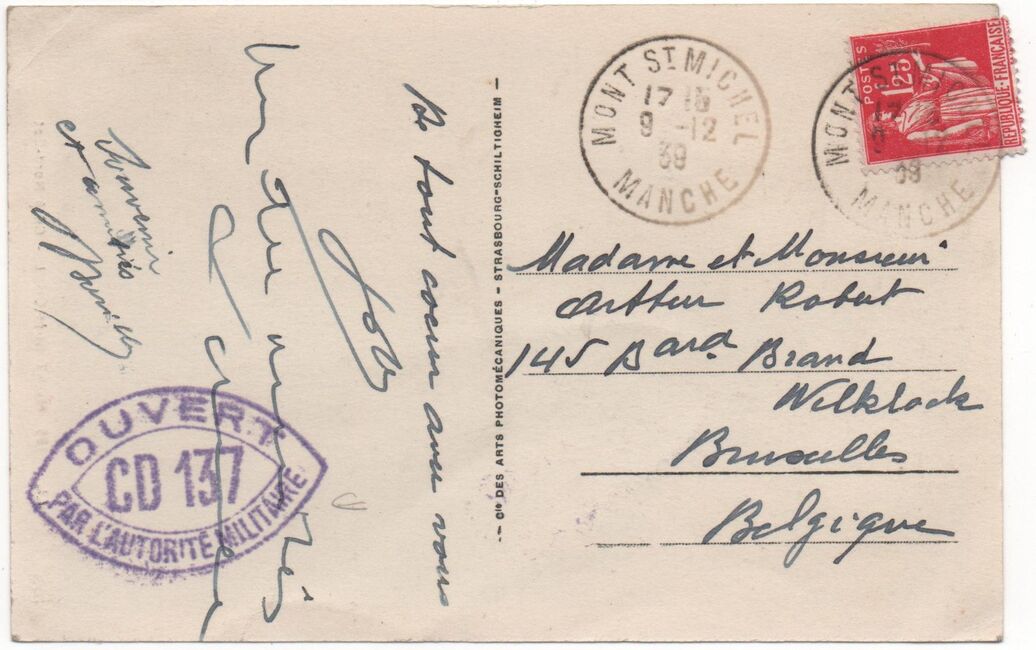 De tout coeur avec vous
Souvenir
et amitiés
OUVERT
CD 137
PAR L'AUTORITÉ MILITAIRE
— Cie DES ARTS PHOTOMÉCANIQUES - STRASBOURG-SCHILTIGHEIM —
MONT ST MICHEL
17 15
9 -12
39
MANCHE
POSTES
1F25
RÉPUBLIQUE-FRANÇAISE
MONT ST MICHEL
39
MANCHE
Madame et Monsieur
Arthur Robert
145 Bard. Brand
Wilklock
Bruxelles
Belgique